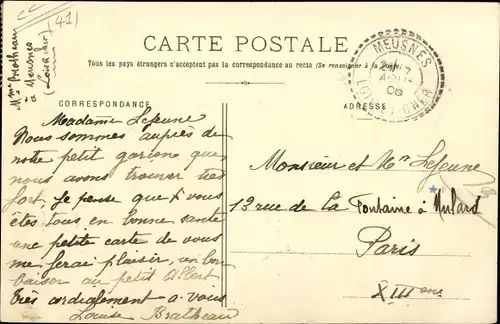 (41)
Mme Bratheau
à Meusnes
(Loir et cher)
CARTE POSTALE
Tous les pays étrangers n'acceptent pas la correspondance au recto (Se renseigner à la Poste)
MEUSNES
LOIR-ET-CHER
08
CORRESPONDANCE
ADRESSE
Madame Lejeune
Nous sommes auprès de
notre petit garçon que
nous avons trouver très
fort, je pense que vous
êtes tous en bonne santé
une petite carte de vous
me ferai plaisir, un bon
baiser au petit Albert
très cordialement a vous
Louise Bratheau
Monsieur et Me Lejeune
13 rue de La Fontaine à Mulard
Paris
XIII eme